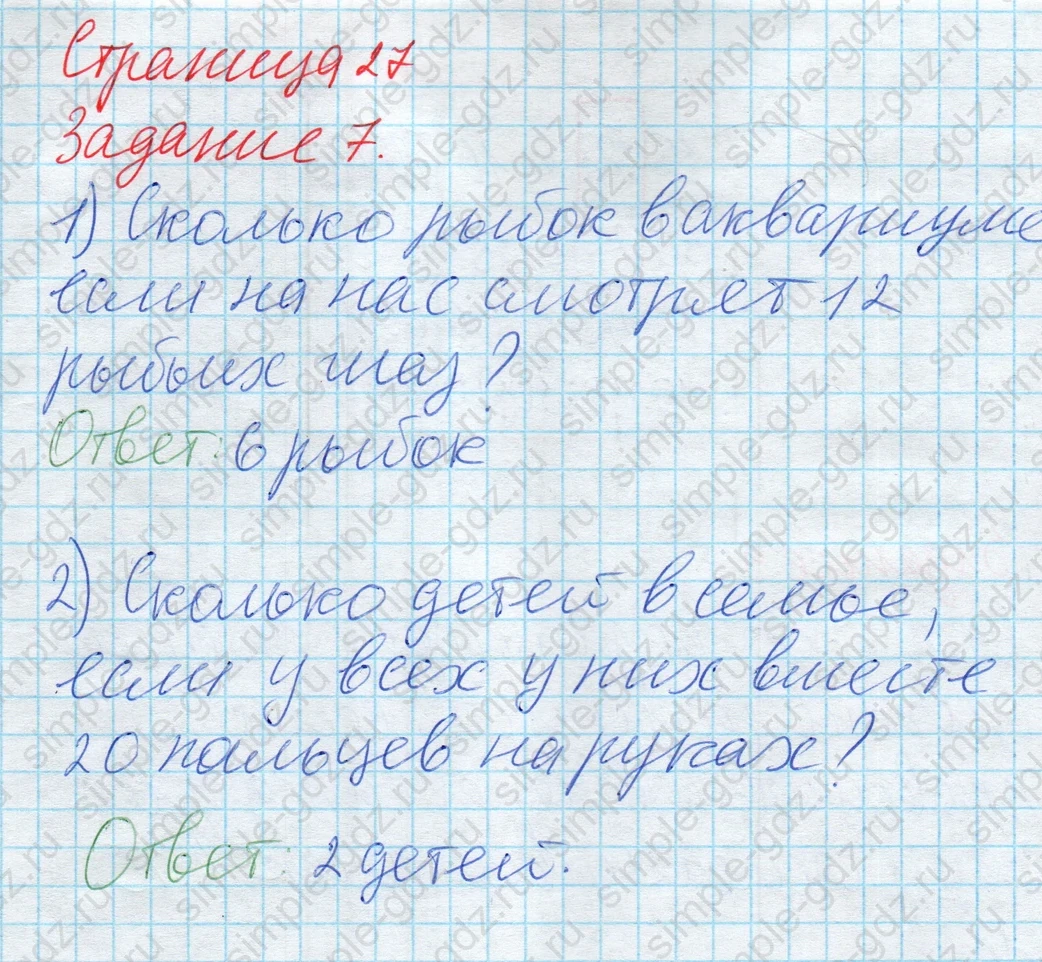 Страница 27
Задание 7.
1) Сколько рыбок в аквариуме
если на нас смотрят 12
рыбьих глаз?
Ответ: 6 рыбок
2) Сколько детей в семье,
если у всех у них вместе
20 пальцев на руках?
Ответ: 2 детей.
simple-gdz.ru